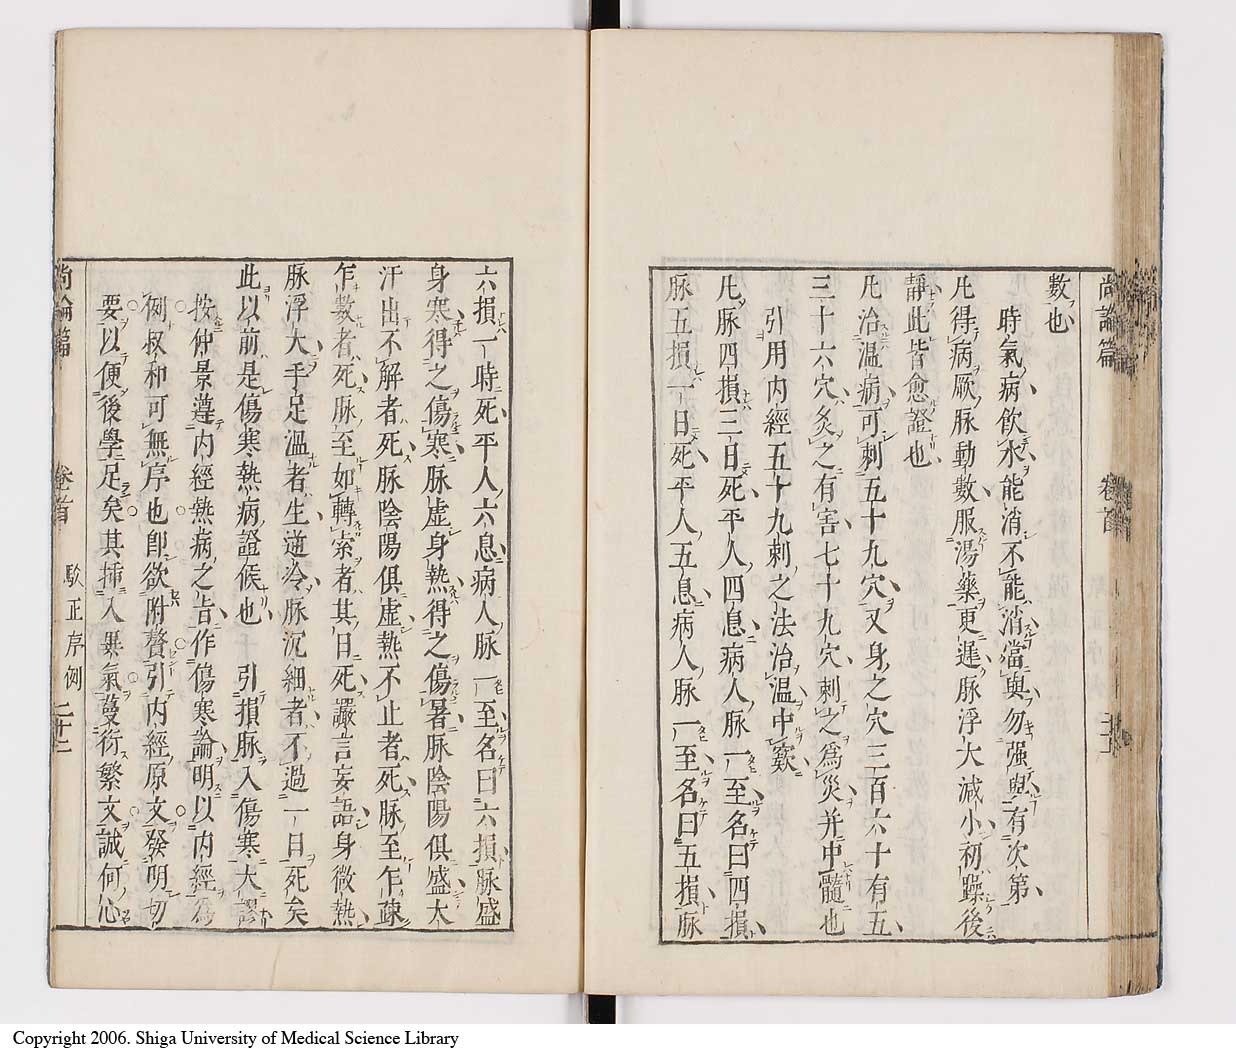 尚論篇　卷首
數也
時氣病飲水能消不能消當與勿强與有次第
凡得病厥脉動數服湯藥更遲脉浮大減小初躁後
靜此皆愈證也
凡治温病可刺五十九穴又身之穴三百六十有五
三十六穴灸之有害七十九穴刺之爲災并中髓也
引用内經五十九刺之法治温中窽
凡脉四損三日死平人四息病人脉一至名曰四損
脉五損一日死平人五息病人脉一至名曰五損脉
六損一時死平人六息病人脉一至名曰六損脉盛
身寒得之傷寒脉虚身熱得之傷暑脉陰陽俱盛大
汗出不解者死脉陰陽俱虚熱不止者死脉至乍疎
乍數者死脉至如轉索者其日死讝言妄語身微熱
脉浮大手足温者生逆冷脉沉細者不過一日死矣
此以前是傷寒熱病證候也　引損脉入傷寒大謬
按仲景遵内經熱病之旨作傷寒論明以内經爲
例叔和可無序也卽欲附贅引内經原文發明切
要以便後學足矣其挿入暴氣蔓衍繁文誠何心
尚論篇　卷首　駁正序例　二十二
Copyright 2006. Shiga University of Medical Science Library